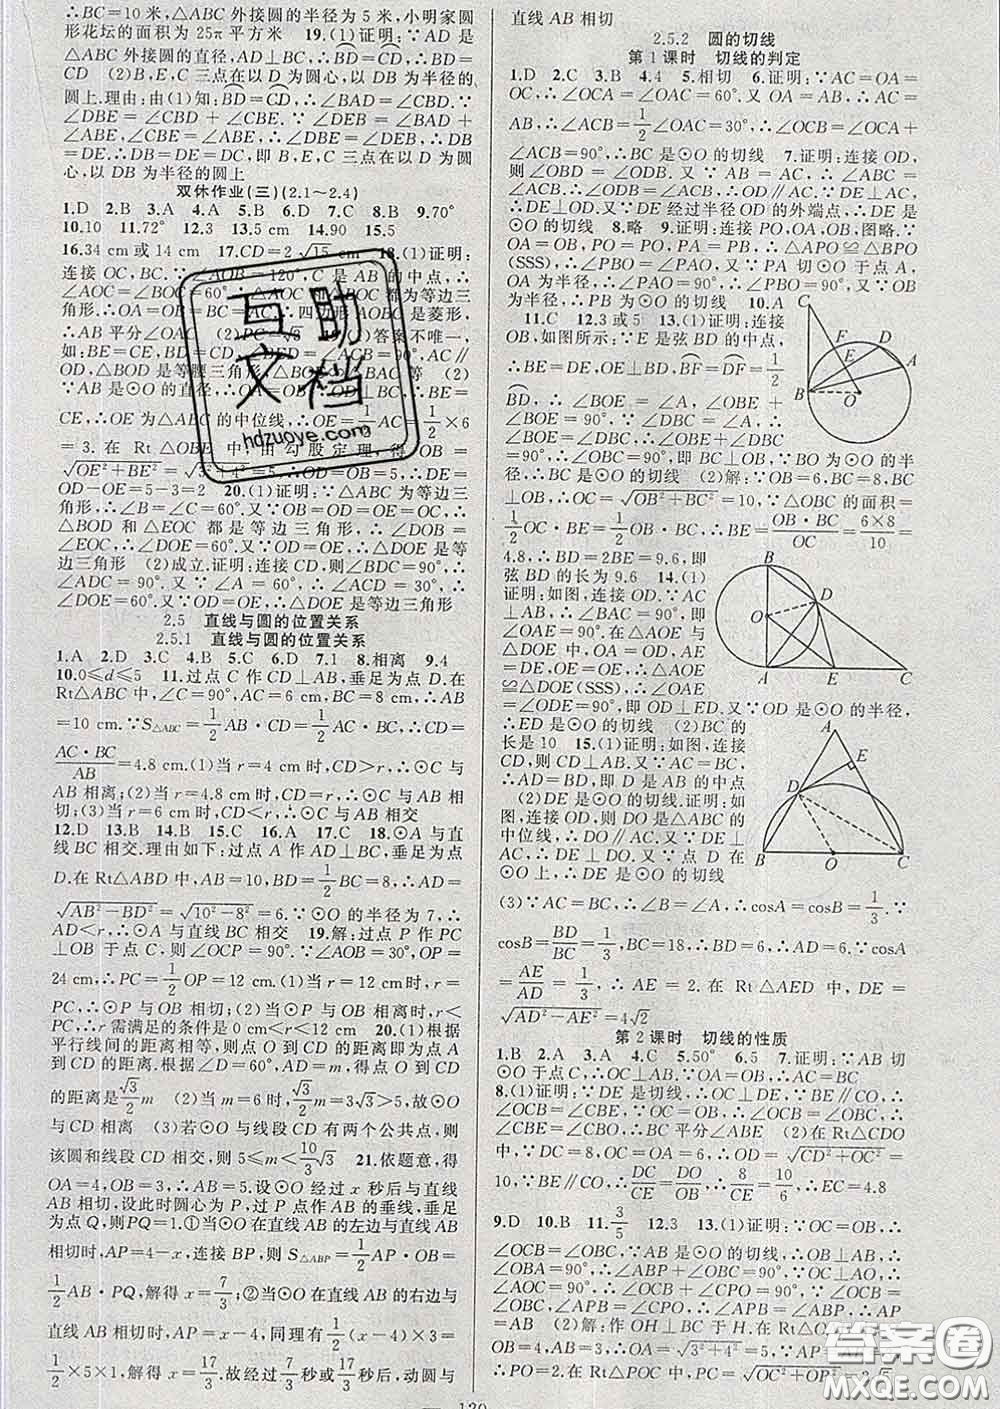 ∴BC=10米,∴△ABC外接圆的半径为5米,小明家圆
形花坛的面积为25π平方米 19.(1)证明:∵AD是
△ABC外接圆的直径,AD⊥BC,∴BD=CD,∴BD
=CD (2)B,E,C三点在以D为圆心,以DB为半径的
圆上.理由:由(1)知:BD=CD,∴∠BAD=∠CBD.
∵∠DBE=∠CBD+∠CBE.∵∠DEB=∠BAD+
∠ABE,∠CBE=∠ABE,∴∠DBE=∠DEB,∴DB
=DE.∴DB=DE=DC,即B,E,C三点在以D为圆
心,以DB为半径的圆上
双休作业(三)(2.1~2.4)
1.D 2.B 3.A 4.A 5.B 6.D 7.C 8.B 9.70°
10.10 11.72° 12.3 13.5 cm 14.90 15.5
16.34 cm或14 cm 17.CD=2√15 cm 18.(1)证明:
连接OC,BC.∵∠AOB=120°,C是AB的中点,∴
∠AOC=∠BOC=60°
形.∴OA=OB=BC=AC,∴四边形AOBC是菱形,
∴AB平分∠OAC
∵AB是⊙O的直径
CE,∴OE为△ABC的中位线,∴OE=1/2AC=1/2×6
=3.在Rt△OBE中,由勾股定理,得OB
OD-OE=5-3=2 20.(1)证明:∵△ABC为等边三
角形,∴∠B=∠C=60°.又∵OB=OD=OE=OC,∴
△BOD和△EOC都是等边三角形,∴∠DOB=
∠EOC=60°,∴∠DOE=60°.∵OD=OE,∴△DOE是等
边三角形 (2)成立.证明:连接CD,则∠BDC=90°.
∴∠ADC=90°.又∵∠A=60°,∴∠ACD=30°,∴
∠DOE=60°.又∵OD=OE,∴△DOE是等边三角形
2.5 直线与圆的位置关系
2.5.1 直线与圆的位置关系
1.A 2.D 3.C 4.B 5.C 6.D 7.1 8.相离 9.4
10.0≤d≤5 11.过点C作CD⊥AB,垂足为点D.在
Rt△ABC中,∠C=90°,AC=6 cm,BC=8 cm,∴AB
=10 cm.∵S△ABC=1/2AB·CD=1/2AC·BC,∴CD=
AC·BC/AB=4.8 cm.(1)当r=4 cm时,CD>r,∴⊙C与
AB相离;(2)当r=4.8 cm时,CD=r,∴⊙C与AB相
切;(3)当r=6 cm时,CD<r,∴⊙C与AB相交
12.D 13.B 14.B 15.C 16.A 17.C 18.⊙A与直
线BC相交.理由如下:过点A作AD⊥BC,垂足为点
D.在Rt△ABD中,AB=10,BD=1/2BC=8,∴AD=
√AB²-BD²=√10²-8²=6.∵⊙O的半径为7,∴
AD<r,∴⊙A与直线BC相交 19.解:过点P作PC
⊥OB于点C,则∠OCP=90°.∵∠AOB=30°,OP=
24 cm,∴PC=1/2OP=12 cm.(1)当r=12 cm时,r=
PC,∴⊙P与OB相切;(2)当⊙P与OB相离时,r<
PC,∴r需满足的条件是0 cm<r<12 cm 20.(1)根据
平行线间的距离相等,则点O到CD的距离即为点A
到CD的距离.根据∠D=60°,AD=m,得点O到CD
的距离是√3/2m (2)当m=6时,√3/2m=3√3>5,故⊙O
与CD相离 (3)若⊙O与线段CD有两个公共点,则
该圆和线段CD相交,则5≤m<10/3√3 21.依题意,得
OA=4,OB=3,∴AB=5.设⊙O经过x秒后与直线
AB相切,设此时圆心为P,过P点作AB的垂线,垂足
为点Q,则PQ=1.①当⊙O在直线AB的左边与直线AB
相切时,AP=4-x,连接BP,则S△ABP=1/2AP·OB=
1/2AB·PQ,解得x=7/3;②当⊙O在直线AB的右边与
直线AB相切时,AP=x-4,同理有1/2(x-4)×3=
1/2×5×1,解得x=17/3.故经过7/3秒或17/3秒时,动圆与
直线AB相切
2.5.2 圆的切线
第1课时 切线的判定
1.D 2.C 3.B 4.4 5.相切 6.证明:∵AC=OA=
OC,∴∠OCA=∠OAC=60°.又OA=AB,∴AC=
AB,∴∠OCB=1/2∠OAC=30°,∴∠OCB=∠OCA+
∠ACB=90°,∴BC是⊙O的切线 7.证明:连接OD,
则∠OBD=∠ODB.又∵AB=AC,∴∠OBD=
∠ACD,∴∠ODB=∠ACD,∴OD∥AC.∵DE⊥AC,
∴DE⊥OD.又∵DE经过半径OD的外端点,∴DE是
⊙O的切线 8.略 9.证明:连接PO,OA,OB,图略.∵
OA=OB,PO=PO,PA=PB,∴△APO≌△BPO
(SSS),∴∠PBO=∠PAO.又∵PA切⊙O于点A,
OA为半径,∴∠PAO=90°,∴∠PBO=90°.∵OB为
半径,∴PB为⊙O的切线 10.A
11.C 12.3或5 13.(1)证明:连接
OB,如图所示:∵E是弦BD的中点,
∴BE=DE,OE⊥BD,BF=DF=1/2
BD,∴∠BOE=∠A,∠OBE+
∠BOE=90°,∵∠DBC=∠A,∴
∠BOE=∠DBC,∴∠OBE+∠DBC
=90°,∴∠OBC=90°,即BC⊥OB,∵BO为⊙O的半
径,∴BC是⊙O的切线 (2)解:∵OB=6,BC=8,BC
⊥OB,∴OC=√OB²+BC²=10,∵△OBC的面积=
1/2OC·BE=1/2OB·BC,∴BE=OB·BC/OC=6×8/10=
4.8,∴BD=2BE=9.6,即
弦BD的长为9.6 14.(1)
证明:如图,连接OD.∵AC
⊥AB,∴∠BAC=90°,即
∠OAE=90°.在△AOE与
△DOE中,∵OA=OD,AE
=DE,OE=OE,∴△AOE
≌△DOE(SSS),∴∠OAE=
∠ODE=90°,即OD⊥ED.又∵OD是⊙O的半径,
∴ED是⊙O的切线 (2)BC的
长是10 15.(1)证明:如图,连接
CD,则CD⊥AB.又∵AC=BC,∴
AD=BD,即D是AB的中点
(2)DE是⊙O的切线.证明:如
图,连接OD,则DO是△ABC的
中位线,∴DO∥AC.又∵DE⊥
AC,∴DE⊥DO.又∵点D在
⊙O上,∴DE是⊙O的切线
(3)∵AC=BC,∴∠B=∠A,∴cosA=cosB=1/3.∵
cosB=BD/BC=1/3,BC=18,∴BD=6,∴AD=6.∵cosA
=AE/AD=1/3,∴AE=2.在Rt△AED中,DE=
√AD²-AE²=4√2
第2课时 切线的性质
1.B 2.A 3.A 4.C 5.50° 6.5 7.证明:∵AB切
⊙O于点C,∴OC⊥AB.∵OA=OB,∴AC=BC
8.(1)证明:∵DE是切线,∴OC⊥DE,∵BE∥CO,
∴∠OCB=∠CBE,∵OC=OB,∴∠OCB=∠OBC,
∴∠CBE=∠CBO,∴BC平分∠ABE (2)在Rt△CDO
中,∵DC=8,OC=OA=6,∴OD=√CD²+OC²=
10,∵OC∥BE,∴DC/CE=DO/OB,∴8/CE=10/6,∴EC=4.8
9.D 10.B 11.3/5 12.3 13.(1)证明:∵OC=OB,∴
∠OCB=∠OBC,∵AB是⊙O的切线,∴OB⊥AB,∴
∠OBA=90°,∴∠ABP+∠OBC=90°,∵OC⊥AO,∴
∠AOC=90°,∴∠OCB+∠CPO=90°,∵∠APB=
∠CPO,∴∠APB=∠ABP,∴AP=
AB (2)解:作OH⊥BC于H.在Rt△OAB中,∵OB
=4,AB=3,∴OA=√3²+4²=5,∵AP=AB=3,
∴PO=2.在Rt△POC中,PC=√OC²+OP²=2√5
C F D E A B O
B D O A E C
A E D B O C
互助文档
hdzuoye.com
答案圈
MXQE.COM
120